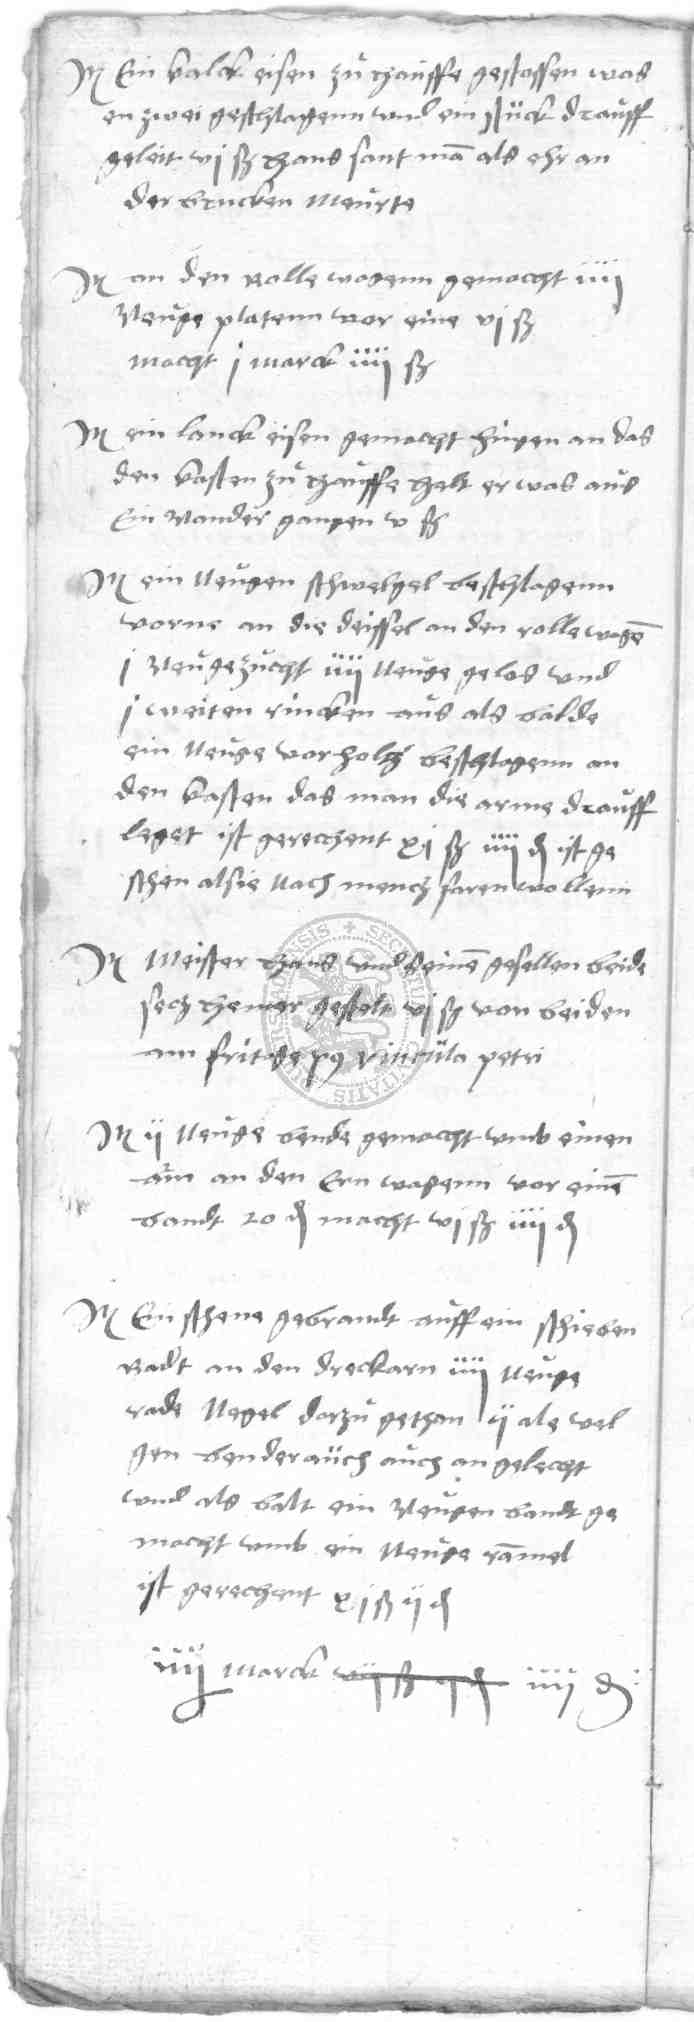 It Ein kalck eisen zu hauffe gestossen was
en zwei geschlagenn vnd ein stück drauff
geleit vj ß hans santman als ehr an
der brucken Meurte
It an den Rolle wagenn gemacht iiij
Neuge platenn vor eine vj ß
macht j marck iiij ß
It ein lanck eisen gemacht hingen an das
den kasten zu hauffe helt er was aus
Ein Nander gangen v ß
It ein Neugen schwelgel beschlagenn
vorne an die deissel an den rolle wagen
j Neuge zucht iiij Neuge gelos vnd
j weiten rincken aus als balde
ein Neuge vorholtz beschlagenn an
den kasten das man die arme drauff
leget ist gerechent xj ß iiij d ist ge
schen alsie Nach mencz faren wollenn
It Meister hans vnd seinen gesellen beide
secz hemer gestelt vj ß von beiden
am fritage post vincula petri
It ij Neuge bende gemacht vmb einen
arm an den Ern wagenn vor einen
bandt 20 d macht vj ß iiij d
It Ein schene gebrandt auff ein schieben
Radt an den dreckarn iiij Neuge
rade Negel darzu gethan ij ale vel
gen bender auch auch an gelecht
vnd als balt ein Neugen bandt ge
macht vmb ein Neuge rammel
ist gerechent xj ß ij d
iiij marck vij ß ij d iiij d
SECRETUM CIVITATIS